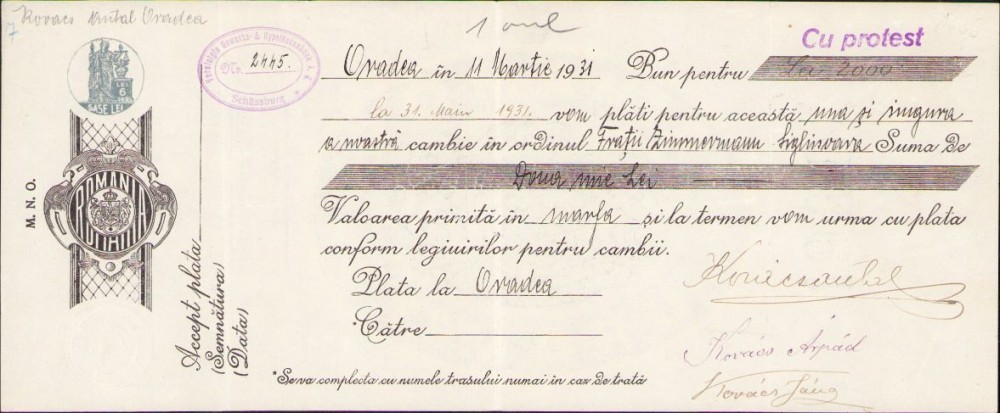 Kovacs Antal Oradea
7
1 onl
Cu protest
ȘASE LEI
LEI 6
Vereinigte Gewerbe- & Hypothekenbank A. G.
No. 2445.
Schässburg
Oradea în 11 Martie 1931 Bun pentru Lei 2000
la 31. Main 1931. vom plăti pentru această una și singura
a noastră cambie în ordinul Frații Zimmermann Sighisoara Suma de
Doua mie Lei
Valoarea primită în marfa și la termen vom urma cu plata
conform legiuirilor pentru cambii.
Plata la Oradea
*Către
*Se va complecta cu numele trasului numai în caz de trată
Kovács Antal
Kovács Árpád
Kovács
M. N. O.
ROMANIA
ROMANIA
Accept plata
(Semnătura)
(Data)